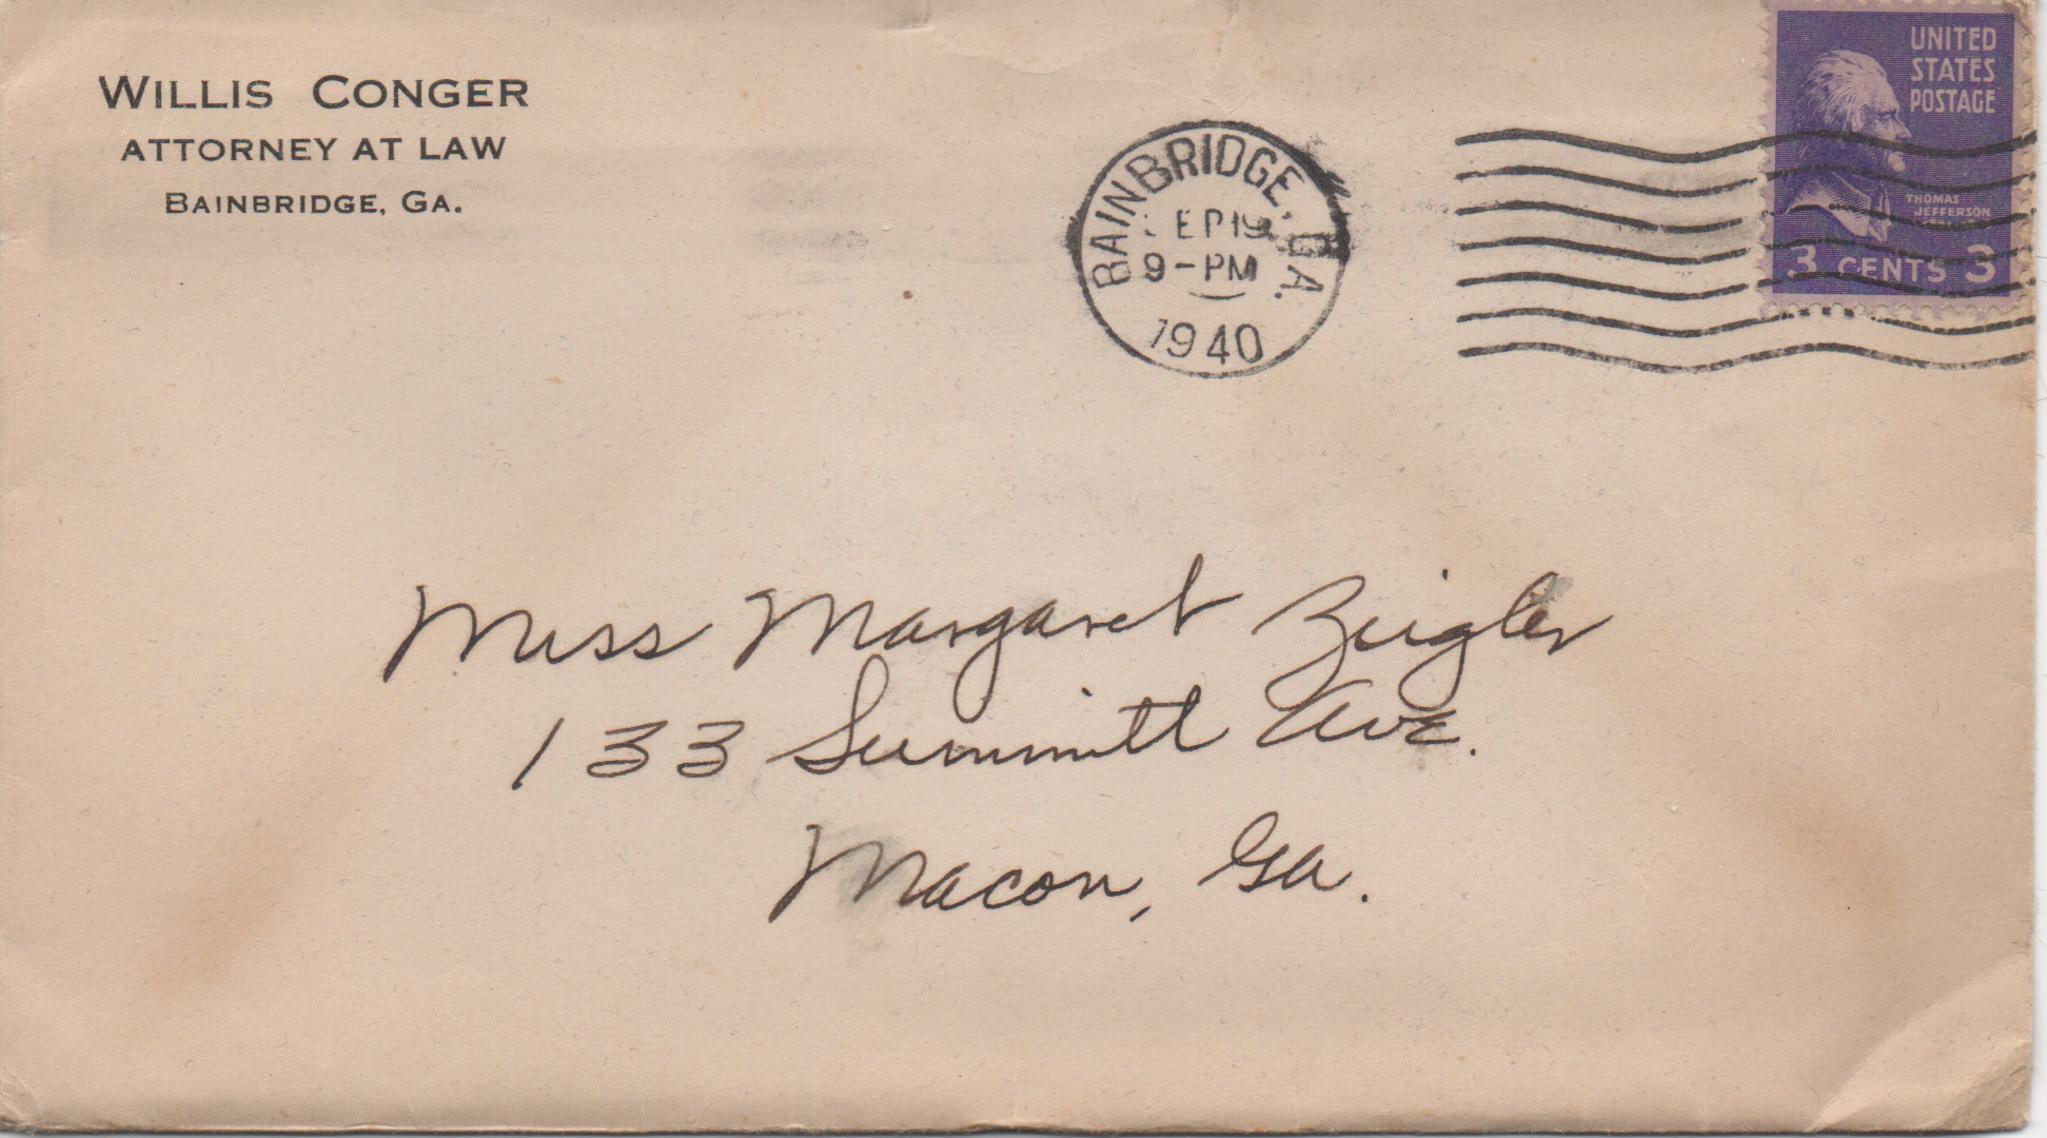 WILLIS CONGER
ATTORNEY AT LAW
BAINBRIDGE, GA.
BAINBRIDGE, GA.
EP 19
9-PM
1940
UNITED
STATES
POSTAGE
THOMAS
JEFFERSON
3 CENTS 3
Miss Margaret Zeigler
133 Summitt Ave.
Macon, Ga.